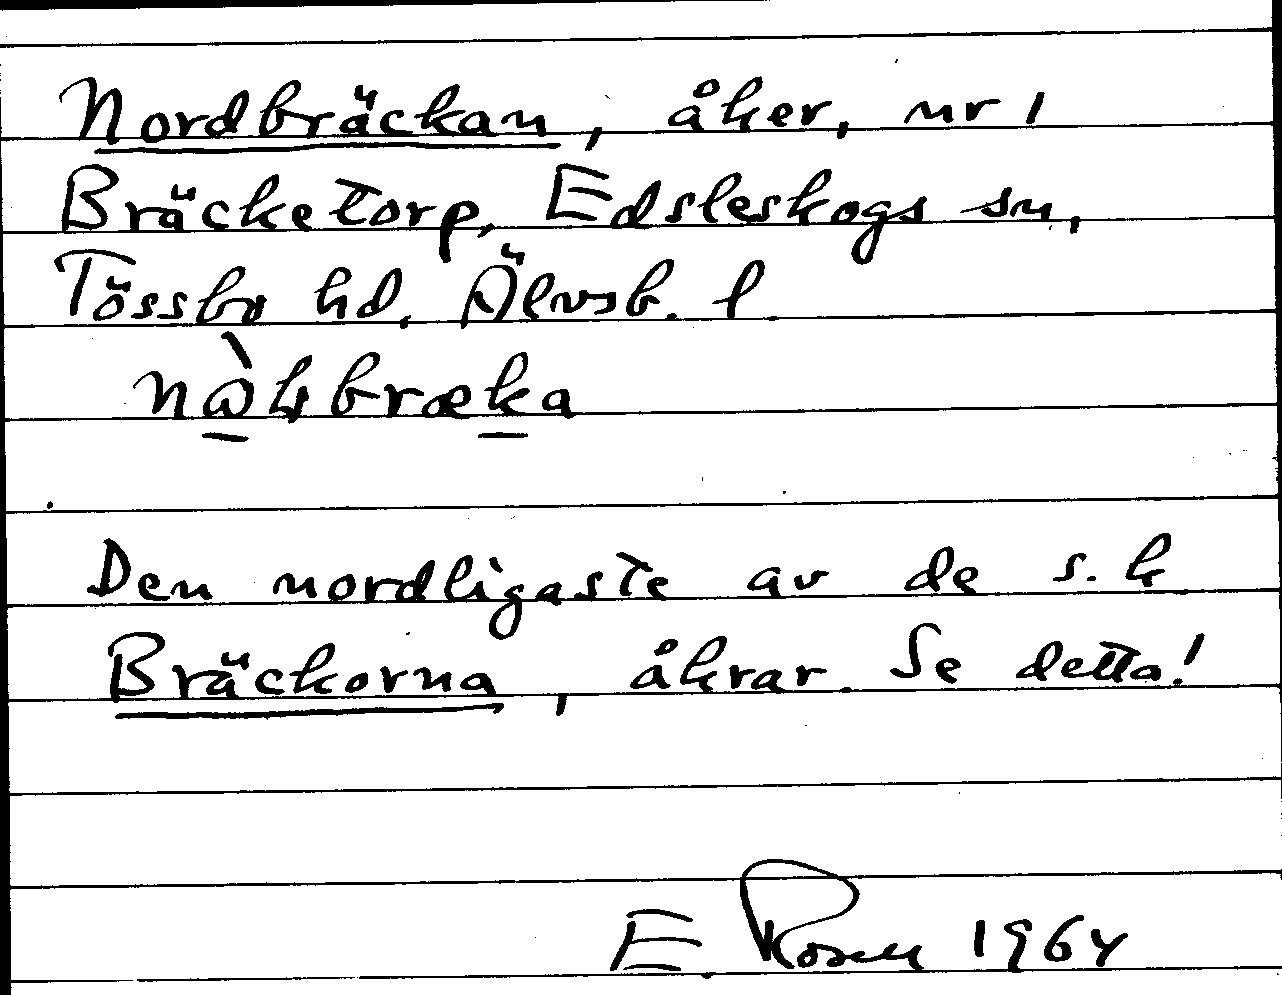 Nordbräckan, åker, nr 1
Bräcketorp, Edsleskogs sn,
Tössbo hd, Älvsb. l
Den nordligaste av de s.k
Bräckorna, åkrar. Se detta!
E. Rosen 1964